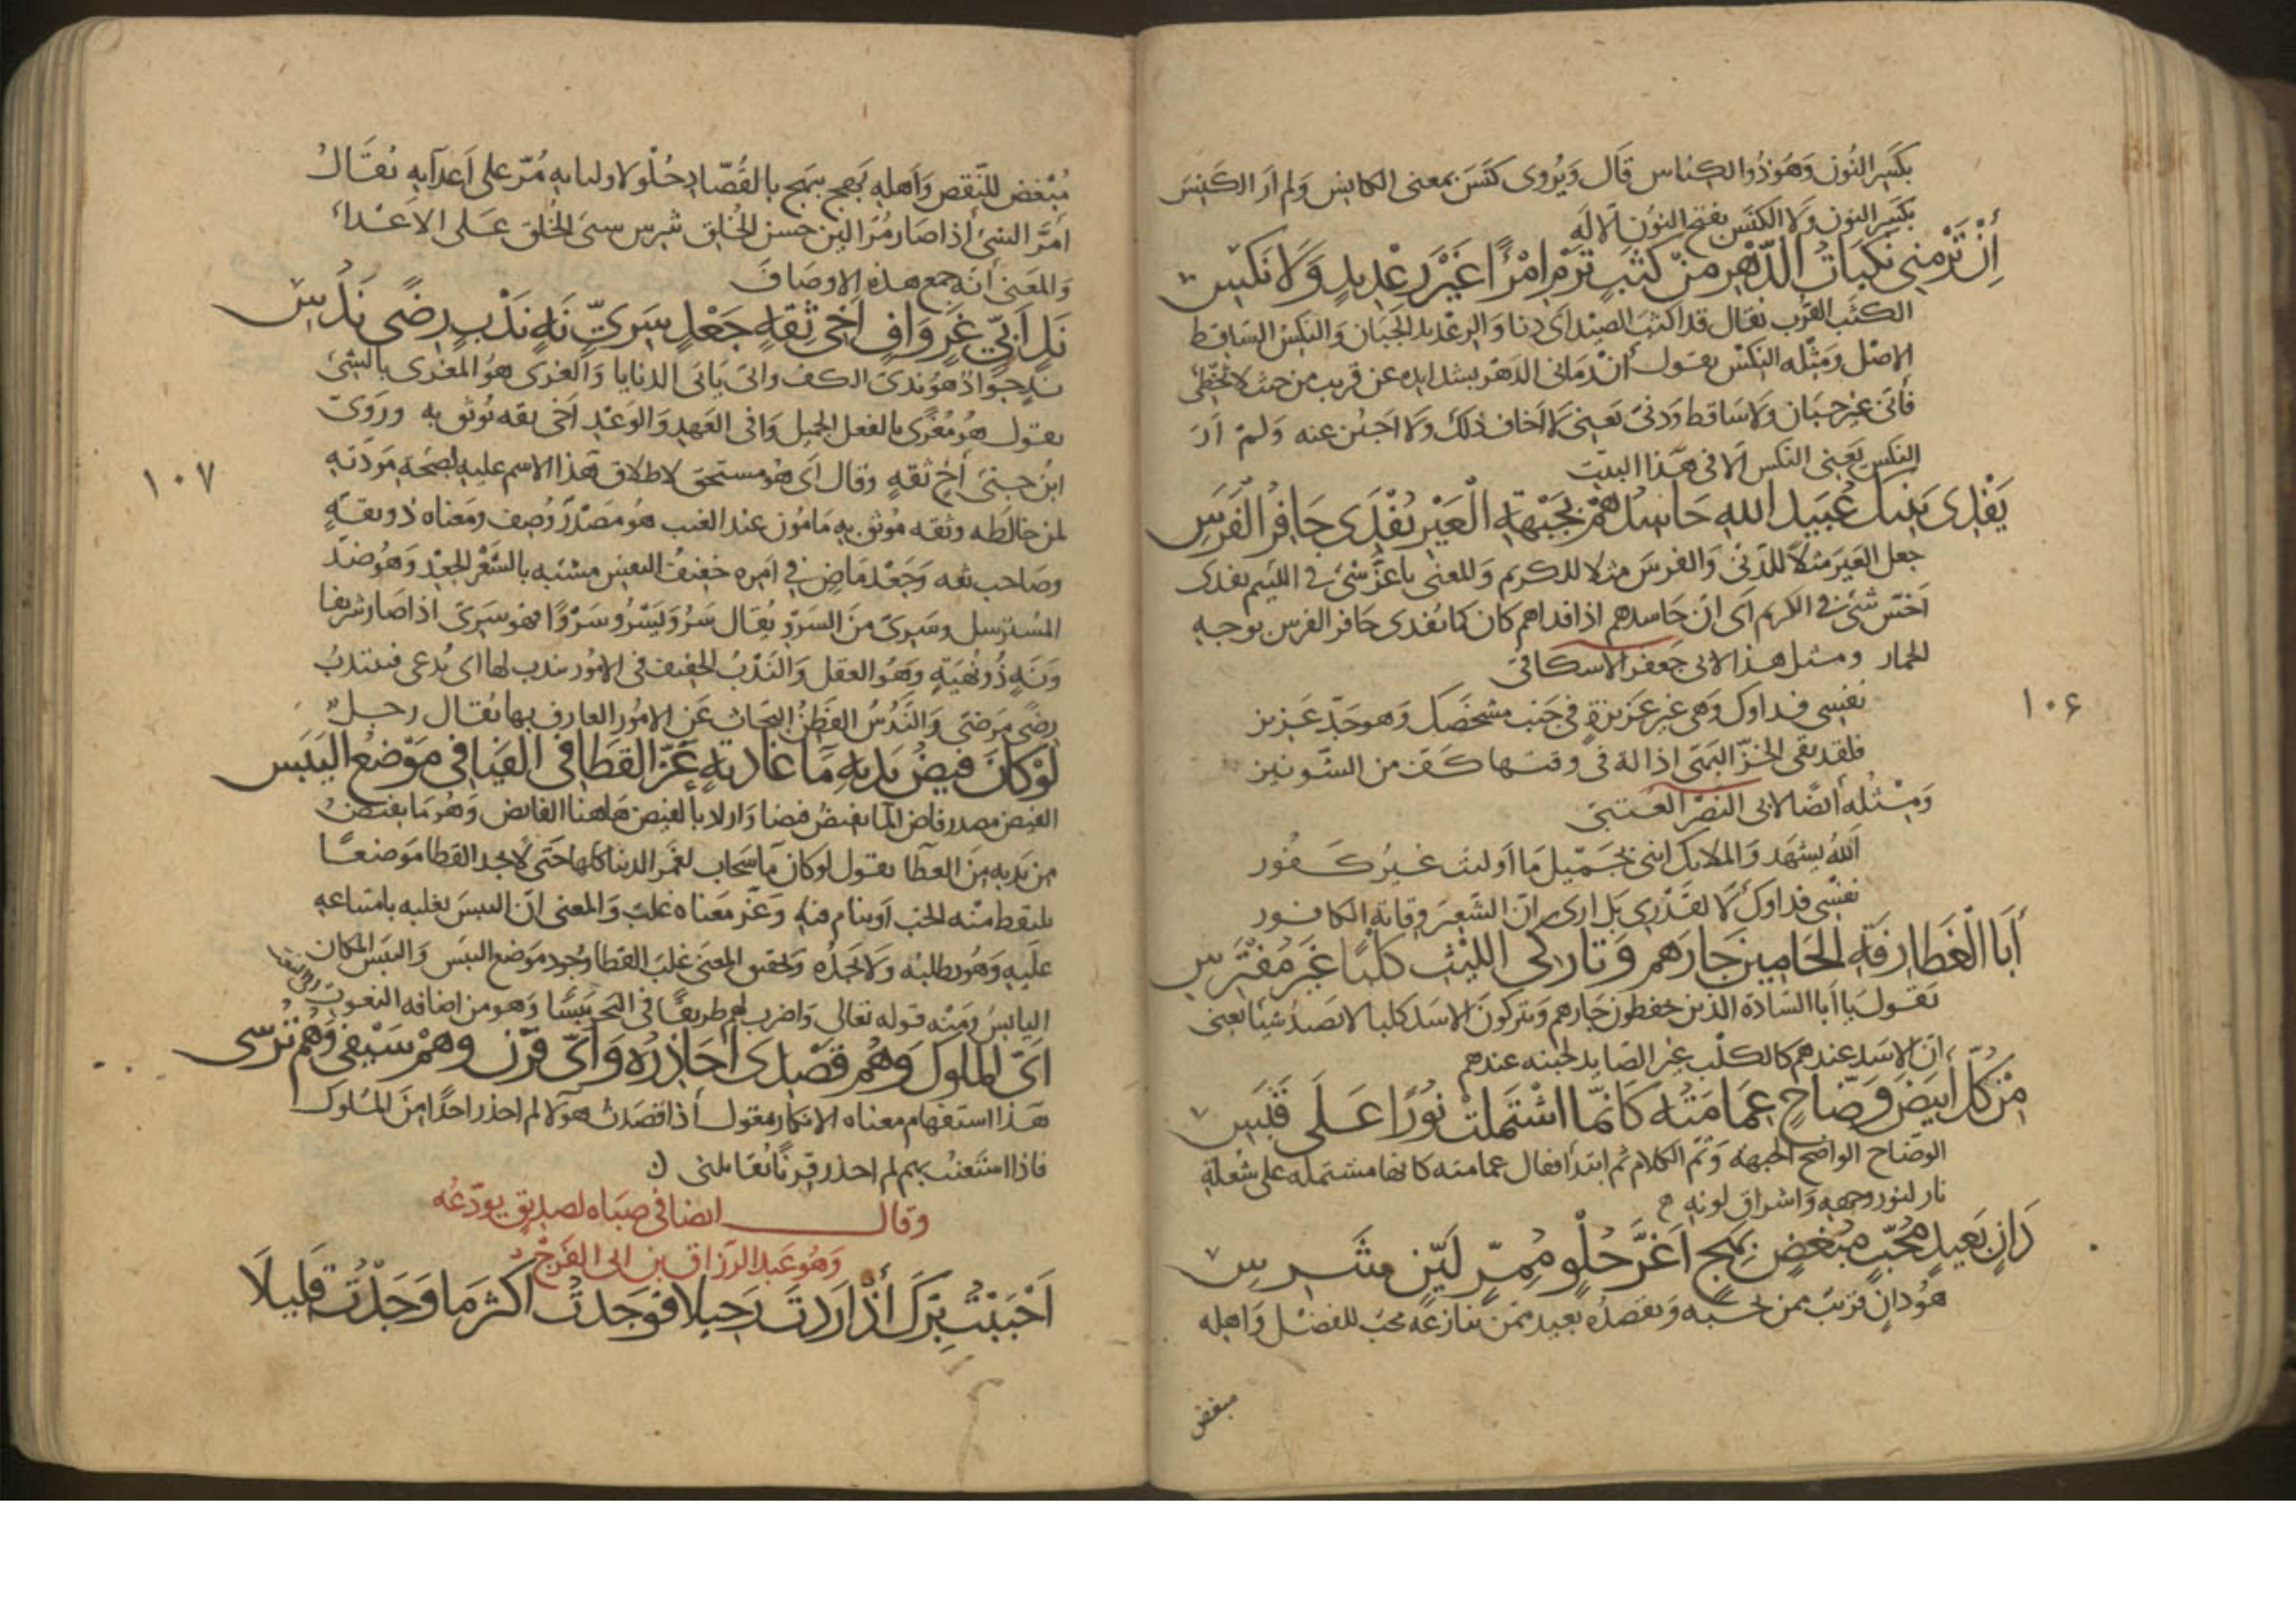 بكسر النون وهو ذو الكناس قال ويروى كنس بمعنى الكانس ولم ار الكنس
بكسر النون ولا الكنس بفتح النون الا له
إن ترمني نكبات الدهر من كثب ترم امرأ غير رعديد ولا نكس
الكثب القرب يقال قد اكثب الصيد أي دنا والرعديد الجبان والنكس الساقط
الاصل ومثله النكس يقول ان رماني الدهر بشدايده عن قريب من حيث لا تخطئ
فأنى غير جبان ولا ساقط ودنى يعنى لا اخاف ذلك ولا اجبن عنه ولم أر
النكس يعنى النكس الا في هذا البيت
يفدى بنيك عبيد الله حاسدهم بجبهة العير يفدى حافر الفرس
جعل العير مثلا للدنى والفرس مثلا للكريم والمعنى باعز شئ في اللئيم يفدى
اخس شئ في الكريم اى ان حاسدهم اذا فداهم كان كما يفدى حافر الفرس بوجه
الحمار ومثل هذا لابى جعفر الاسكافى
نفسى فداوك وهى غير عزيزة في جنب شخصك وهو جد عزيز
فلقد يقى الخز اليمنى اذاله في وقتها كف من الشونيز
ومثله أيضا لابى النصر العتبى
الله يشهد والملايك اننى بجميل ما اوليت غير كفور
نفسى فداوك لا لقدرى بل ارى ان الشعير وقاية الكافور
أبا الغطارفة الحامين جارهم وتاركى الليث كلبا غير مفترس
يقول يا أبا السادة الذين يحفظون جارهم ويتركون الاسد كلبا لا يصيد شيئا يعنى
ان الاسد عندهم كالكلب غير الصايد لجبنه عندهم
من كل أبيض وضاح عمامته كأنما اشتملت نورا على قبس
الوضاح الواضح الجبهة وتم الكلام ثم ابتدأ فقال عمامته كانها مشتملة على شعلة
نار لنور وجهه واشراق لونه
دان بعيد محب مبغض بهج أغر حلو ممر لين شرس
هو دان قريب ممن يقصده بعيد ممن ينازعه محب للفضل واهله
مبغض
١٠۶
مبغض للنقص واهله بهج يبهج بالقصاد حلو لاوليايه مر على اعدآيه يقال
امر الشئ اذا صار مرا لين حسن الخلق شرس سيئ الخلق على الاعدا
والمعنى أنه جمع هذه الاوصاف
ند أبى غر واف أخى ثقة جعد سرى نه ندب رضى ندس
ند جواد هو ندى الكف وابى يابى الدنايا والغرى هو المغرى بالشئ
يقول هو مغرى بالفعل الجميل وافى العهد والوعد اخى ثقه يوثق به وروى
ابن جنى أخ ثقة وقال اى هو مستحق لاطلاق هذا الاسم عليه لصحة مودته
لمن خالطه وثقه موثوق به مامون عند الغيب هو مصدر وصف ومعناه ذو ثقة
وصاحب ثقه وجعد ماض في امره خفيف النفس مشبه بالشعر الجعد وهو ضد
المسترسل وسرى من السرو يقال سرو يسرو سروا فهو سرى اذا صار شريفا
ونه ذو نهية وهو العقل والندب الخفيف في الامور يندب لها اى يدعى فينتدب
رضى مرضى والندس الفطن البحاث عن الامور العارف بها يقال رجل
لو كان فيض يديه ما غادية عز القطا في الفيافى موضع اليبس
الفيض مصدر فاض الما يفيض فيضا واراد بالفيض هاهنا الفايض وهو ما يفيض
من يديه من العطا يقول لو كان مآ سحاب لغمر الدنيا كلها حتى لا يجد القطا موضعا
يلتقط منه الحب أو ينام فيه وعز معناه غلب والمعنى ان اليبس يغلبه بامتناعه
عليه وهو يطلبه ولا يجده وتحقيق المعنى غلب القطا وجود موضع اليبس واليبس المكان
اليابس ومنه قوله تعالى واضرب لهم طريقا في البحر يبسا وهو من اضافه المنعوت
اى الملوك وهم قصدى أحاذره واى قرن وهم سيفى وهم ترسى
هذا استفهام معناه الانكار يقول اذا قصدت هولا لم احذر احدا من الملوك
فاذا استعنت بهم لم احذر قرنا يقاتلنى
وقال ايضا في صباه لصديق يودعه
وهو عبد الرزاق بن ابى الفرج
أحببت برك أذ اردت رحيلا فوجدت اكثر ما وجدت قليلا
١٠٧